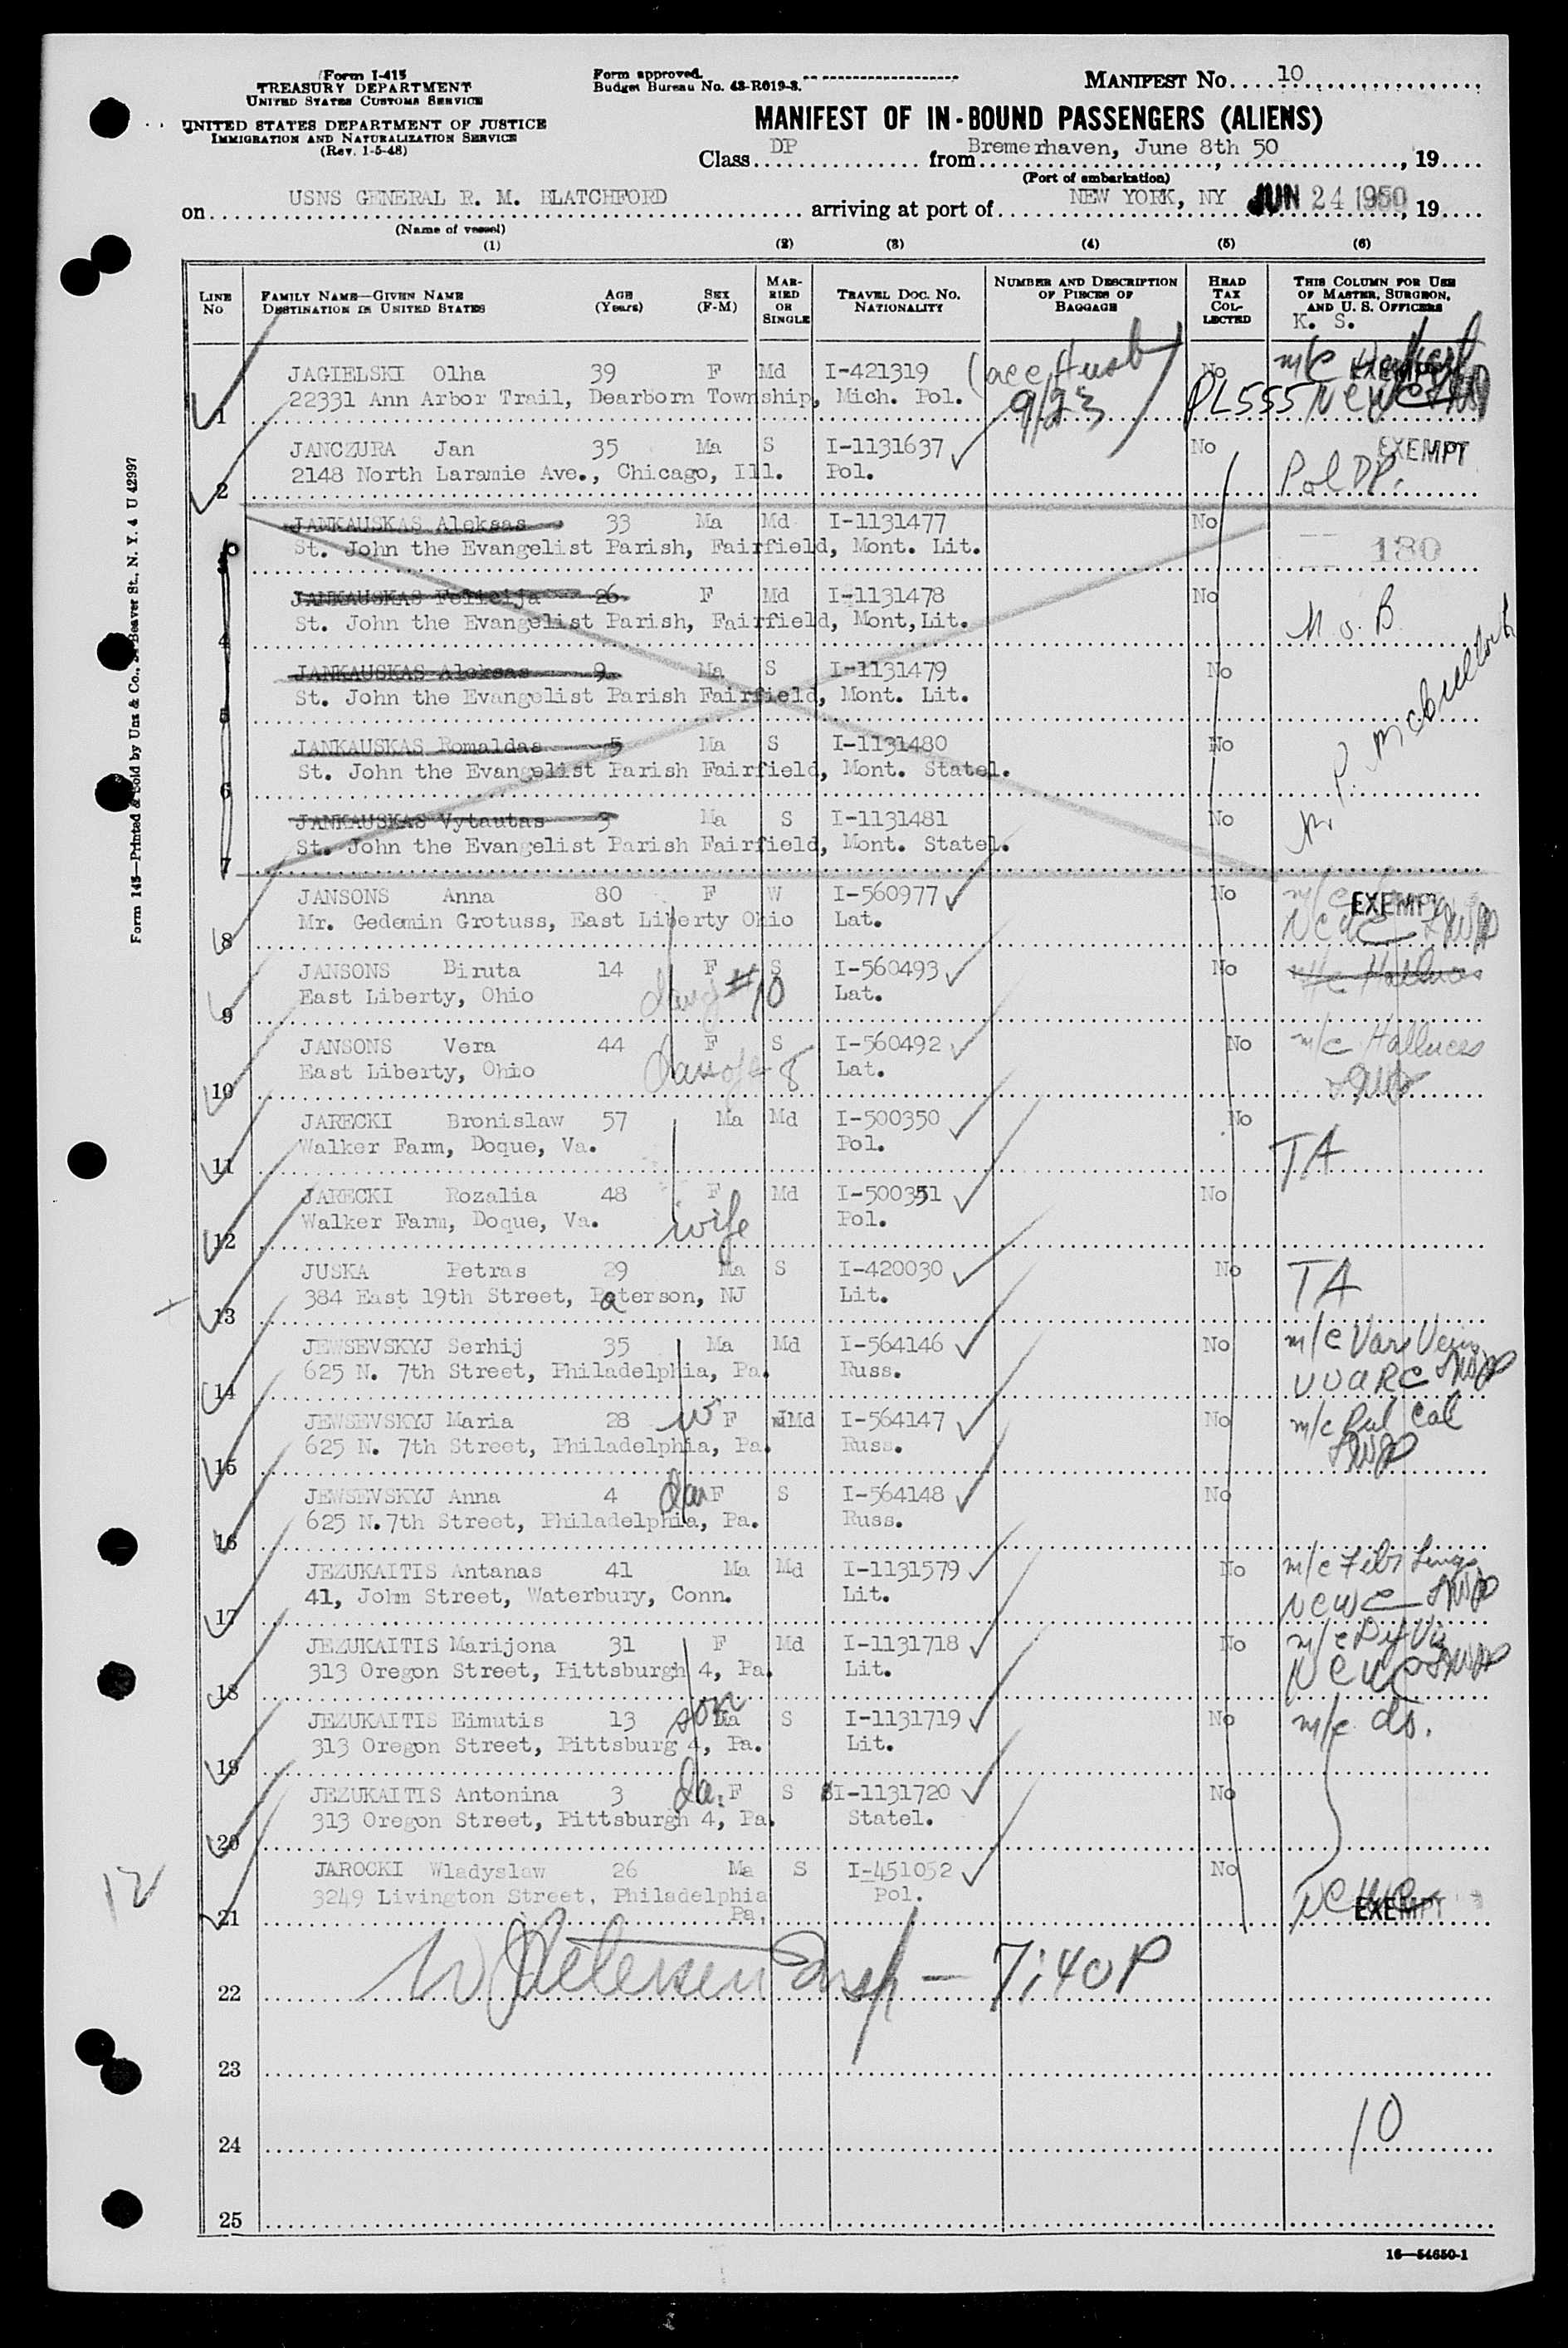 Form I-415
TREASURY DEPARTMENT
UNITED STATES CUSTOMS SERVICE
UNITED STATES DEPARTMENT OF JUSTICE
IMMIGRATION AND NATURALIZATION SERVICE
(Rev. 1-5-48)
Form approved.
Budget Bureau No. 43-R019-3.
MANIFEST No. 10
MANIFEST OF IN-BOUND PASSENGERS (ALIENS)
Class DP from Bremerhaven, June 8th 50, 19
(Port of embarkation)
on USNS GENERAL R. M. BLATCHFORD arriving at port of NEW YORK, NY JUN 24 1950, 19
(Name of vessel)
(1) (2) (3) (4) (5) (6)
LINE No FAMILY NAME—GIVEN NAME DESTINATION IN UNITED STATES AGE (Years) SEX (F-M) MARRIED OR SINGLE TRAVEL DOC. NO. NATIONALITY NUMBER AND DESCRIPTION OF PIECES OF BAGGAGE HEAD TAX COLLECTED THIS COLUMN FOR USE OF MASTER, SURGEON, AND U. S. OFFICERS
K. S.
JAGIELSKI Olha 39 F Md I-421319 (acc Husb No m/c
1 22331 Ann Arbor Trail, Dearborn Township, Mich. Pol. 9/23 PL555 NCWC
JANCZURA Jan 35 Ma S I-1131637 No EXEMPT
2 2148 North Laramie Ave., Chicago, Ill. Pol. Pol DP.
JANKAUSKAS Aleksas 33 Ma Md I-1131477 No
3 St. John the Evangelist Parish, Fairfield, Mont. Lit. 180
JANKAUSKAS Felicija 26 F Md I-1131478 No
4 St. John the Evangelist Parish, Fairfield, Mont, Lit. N.o.B.
JANKAUSKAS Aleksas 9 Ma S I-1131479 No
5 St. John the Evangelist Parish Fairfield, Mont. Lit.
JANKAUSKAS Romaldas 5 Ma S I-1131480 No
6 St. John the Evangelist Parish Fairfield, Mont. Statel.
JANKAUSKAS Vytautas 3 Ma S I-1131481 No
7 St. John the Evangelist Parish Fairfield, Mont. Statel.
JANSONS Anna 80 F W I-560977 No m/c EXEMPT
8 Mr. Gedemin Grotuss, East Liberty Ohio Lat. NCWC
JANSONS Biruta 14 F S I-560493 No m/c Halluces
9 East Liberty, Ohio daug #10 Lat.
JANSONS Vera 44 F S I-560492 No m/c Halluces
10 East Liberty, Ohio dau of 8 Lat.
JARECKI Bronislaw 57 Ma Md I-500350 No
11 Walker Farm, Doque, Va. Pol. TA
JARECKI Rozalia 48 F Md I-500351 No
12 Walker Farm, Doque, Va. wife Pol.
JUSKA Petras 29 Ma S I-420030 No TA
13 384 East 19th Street, Paterson, NJ Lit.
JEWSEVSKYJ Serhij 35 Ma Md I-564146 No m/c Var Veins
14 625 N. 7th Street, Philadelphia, Pa. Russ. UUARC
JEWSEVSKYJ Maria 28 w F Md I-564147 No m/c Pul Cal
15 625 N. 7th Street, Philadelphia, Pa. Russ.
JEWSEVSKYJ Anna 4 dau F S I-564148 No
16 625 N.7th Street, Philadelphia, Pa. Russ.
JEZUKAITIS Antanas 41 Ma Md I-1131579 No m/c Fibr Lungs
17 41, John Street, Waterbury, Conn. Lit. NCWC
JEZUKAITIS Marijona 31 F Md I-1131718 No m/c Df Vis
18 313 Oregon Street, Pittsburgh 4, Pa. Lit. NCWC
JEZUKAITIS Eimutis 13 son Ma S I-1131719 No m/c do.
19 313 Oregon Street, Pittsburg 4, Pa. Lit.
JEZUKAITIS Antonina 3 da. F S I-1131720 No
20 313 Oregon Street, Pittsburgh 4, Pa. Statel.
JAROCKI Wladyslaw 26 Ma S I-451052 No
12 3249 Livington Street, Philadelphia Pol. NCWC
21 Pa. EXEMPT
22 W Petersen Insp — 7:40P
23
24 10
25
16—54650-1
Form 145—Printed & Sold by Unz & Co., Beaver St., N. Y. 4 U 42997